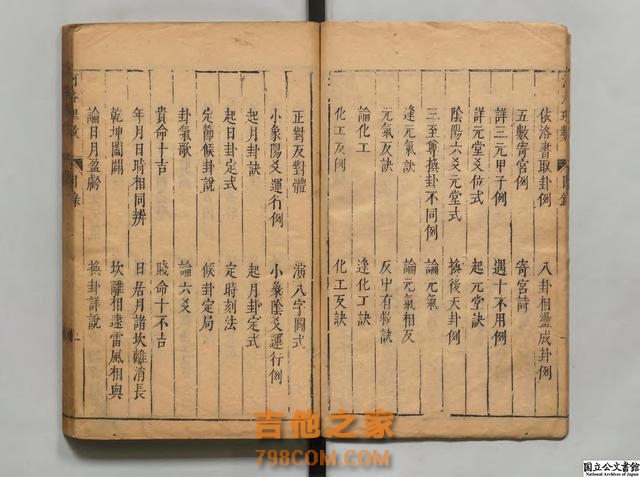 依洛書取卦例　八卦相盪成卦例
五數寄宮例　寄宮詩
詳三元甲子例　遇十不用例
詳元堂爻位式　起元堂訣
陰陽六爻元堂式　換後天卦例
三至尊換卦不同例　論元氣
逢元氣訣　論元氣相反
元氣反訣　反中有救訣
論化工　逢化工訣
化工反例　化工反訣
正對反對體　演八字圖式
小象陽爻運行例　小象陰爻運行例
起月卦訣　起月卦定式
起日卦定式　定時刻法
定節候卦說　候卦定局
卦氣歌　論六爻
貴命十吉　賤命十不吉
年月日時相同辨　日居月諸坎離消長
乾坤闔闢　坎離相逺雷風相與
論日月盈虧　換卦詳說
目錄
吉他之家
798COM.COM
国立公文書館
National Archives of Japan